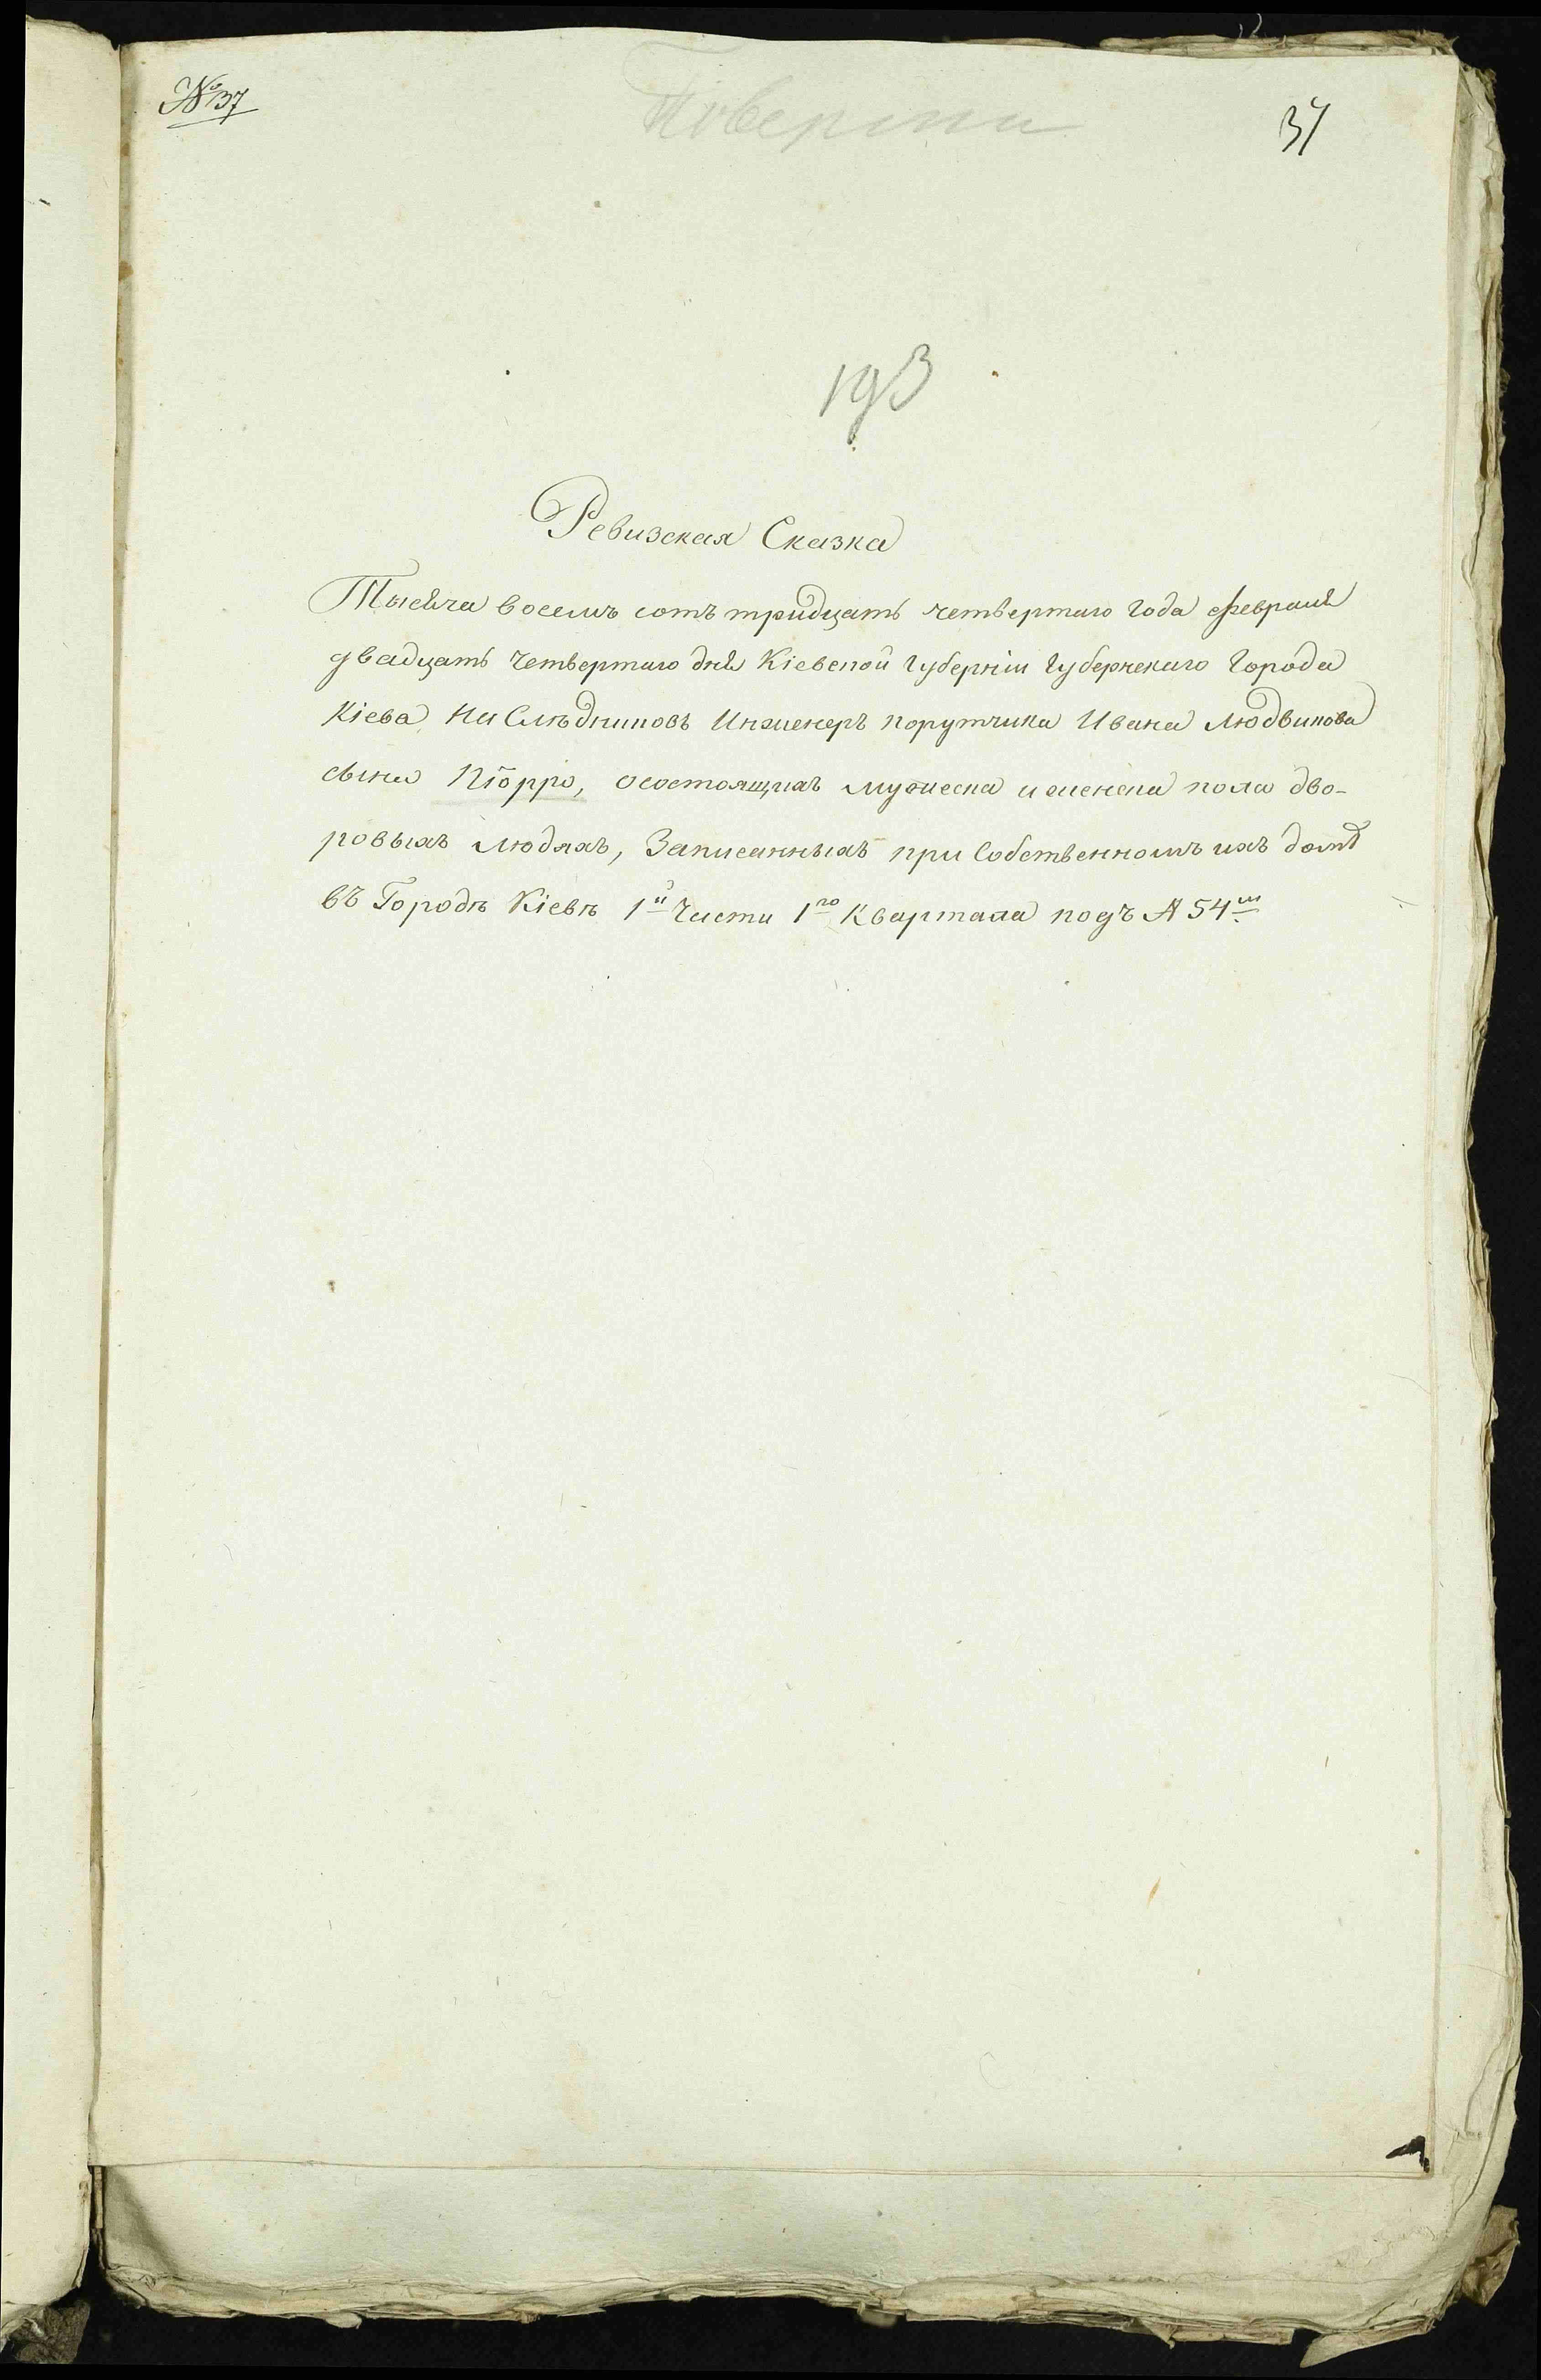 № 37
37
193
Ревизская Сказка
Тысяча восемъ сотъ тридцать четвертаго года февраля
двадцать четвертаго дня Кіевской губерніи губернскаго города
Кіева Наследниковъ Инженеръ порутчика Ивана Людвикова
сына Піорро, осостоящихъ мужеска и женска пола дво-
ровыхъ людяхъ, Записанныхъ при собственномъ ихъ домѣ
въ Городѣ Кіевѣ 1й Части 1го Квартала подъ № 54м